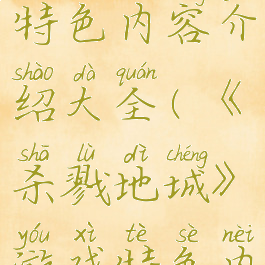 特色内容介
shào dà quán
绍大全(《
shā lù dì chéng
杀戮地城》
yóu xì tè sè nèi
游戏特色内